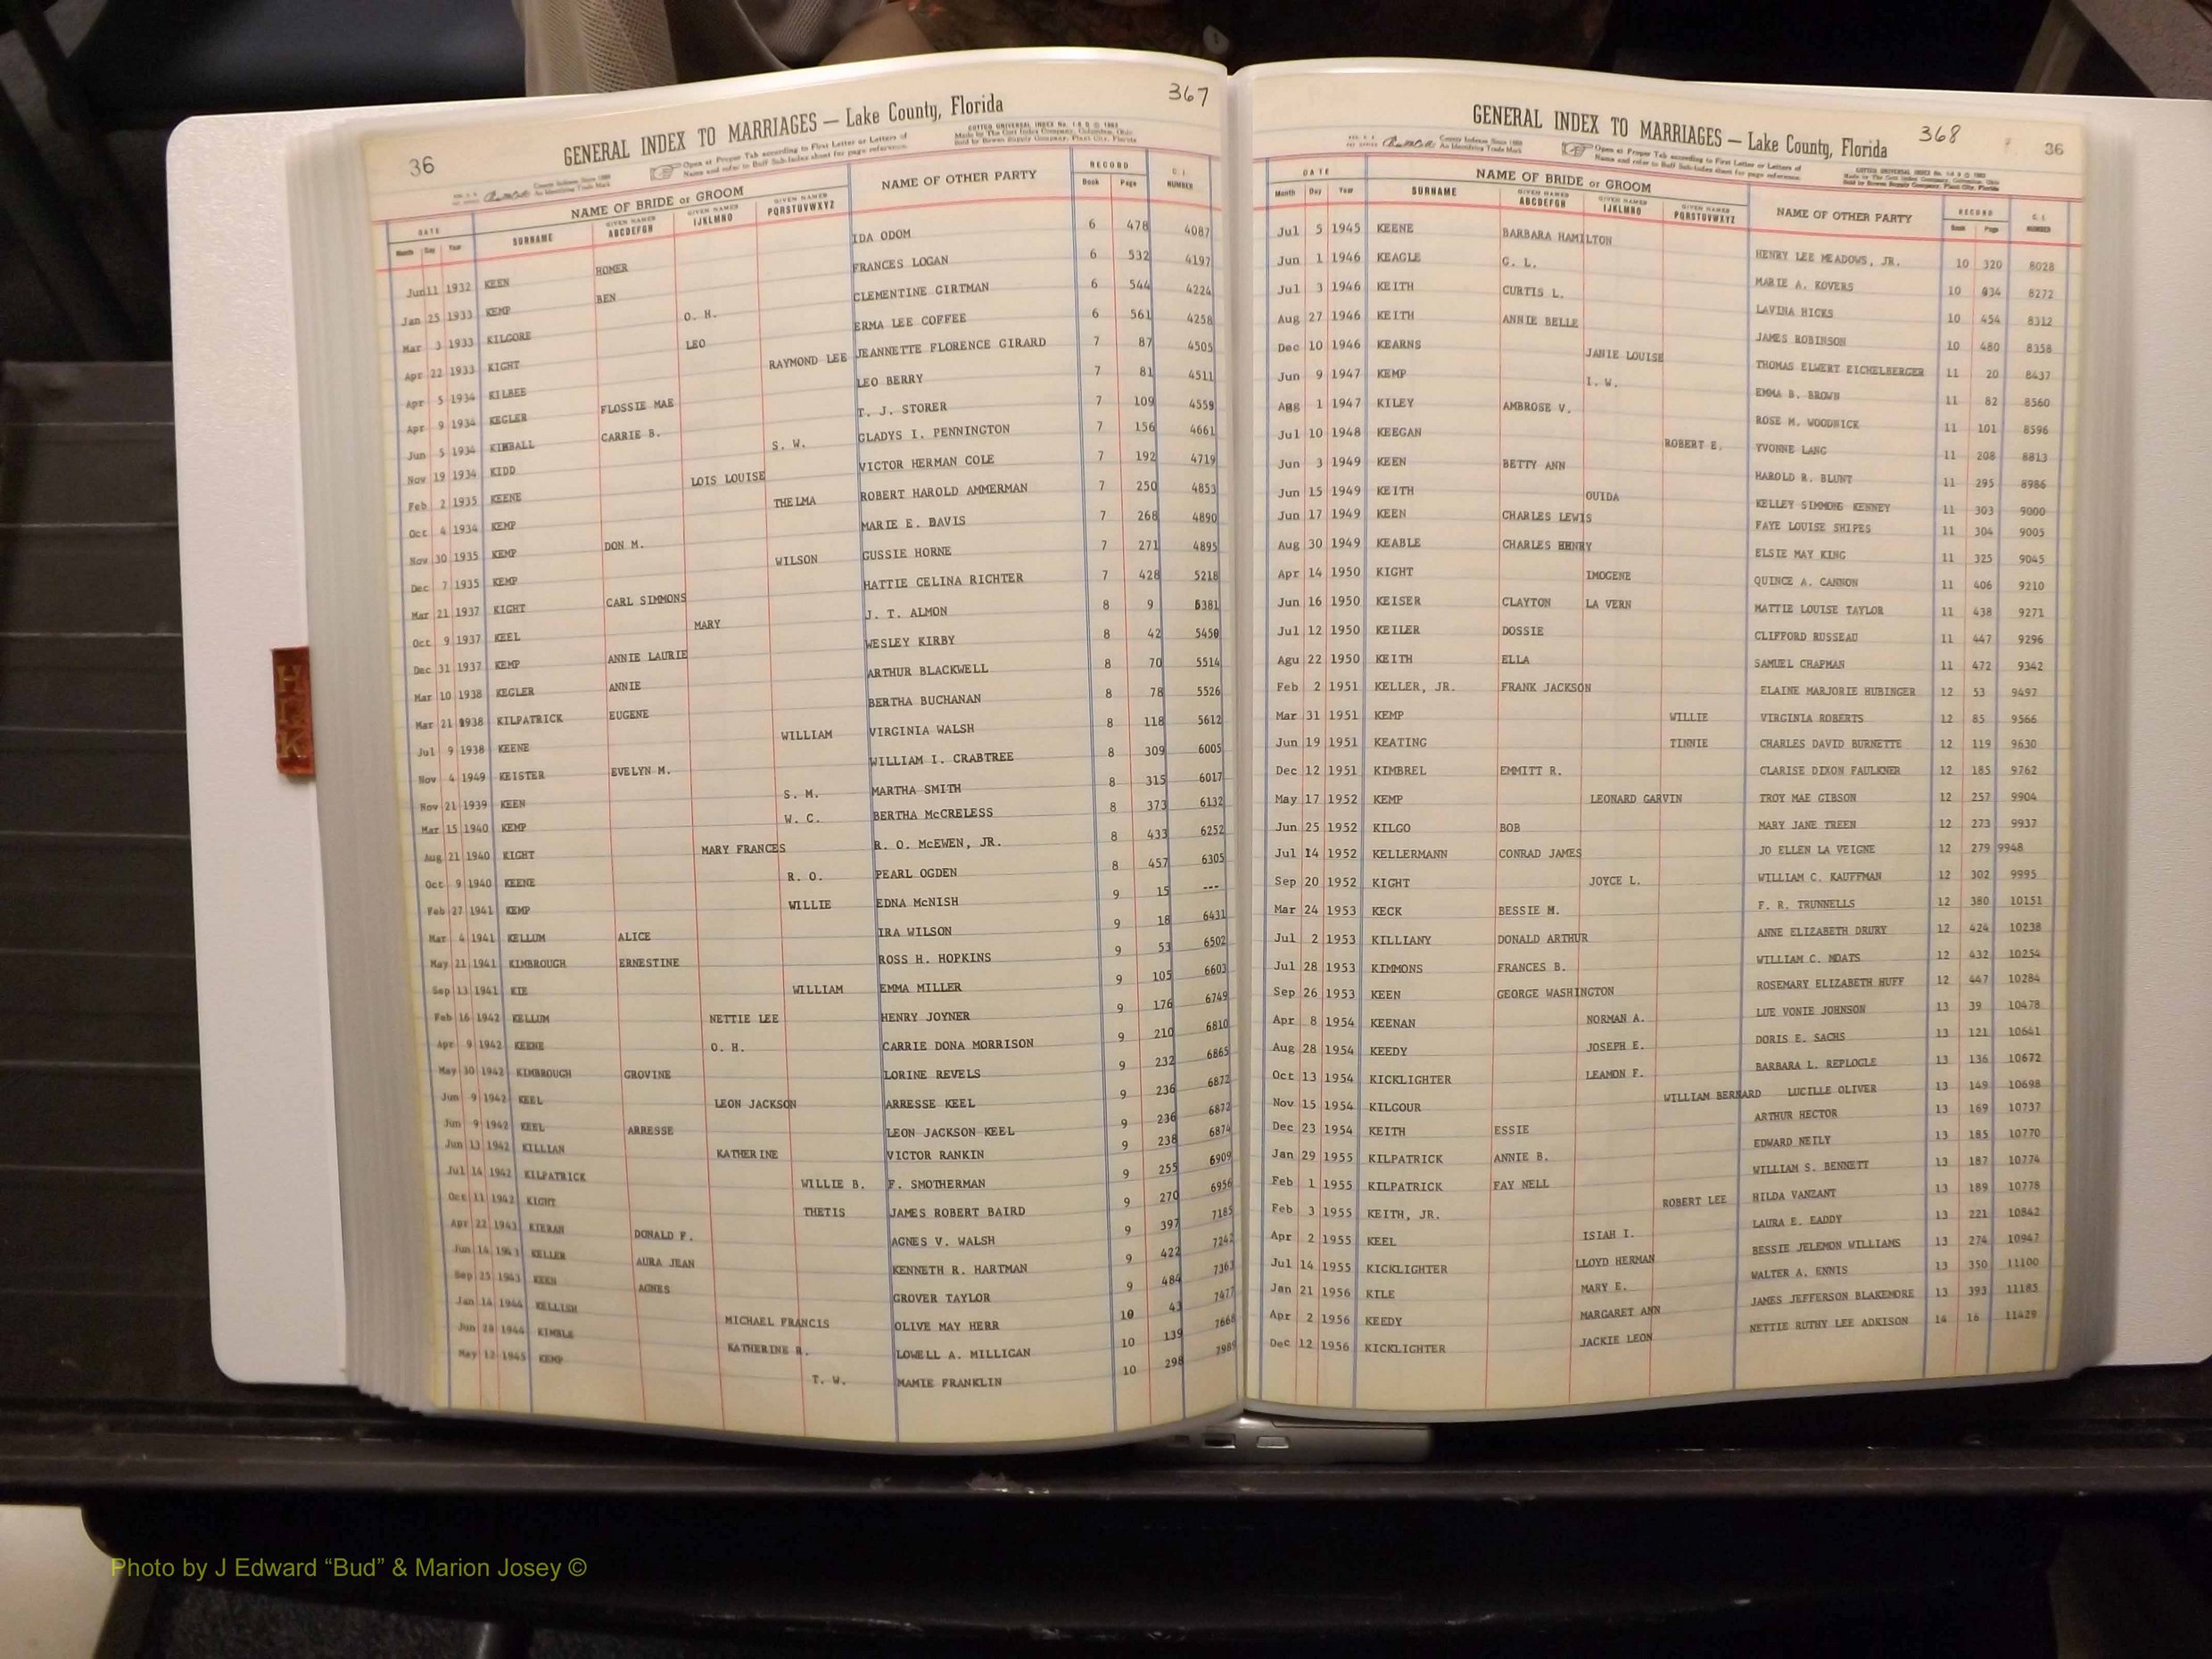 367
36
GENERAL INDEX TO MARRIAGES — Lake County, Florida
COTTED UNIVERSAL INDEX No. 1-S
Made by The Cott Index Company, Columbus, Ohio
Sold by Bowen Supply Company, Plant City, Florida
County Indexes Since 1888
An Identifying Trade Mark
Open at Proper Tab according to First Letter or Letters of
Name and refer to Buff Sub-Index sheet for page reference.
DATE NAME OF BRIDE or GROOM NAME OF OTHER PARTY RECORD C. I. NUMBER
Month Day Year SURNAME GIVEN NAMES ABCDEFGH GIVEN NAMES IJKLMNO GIVEN NAMES PQRSTUVWXYZ Book Page
Jun 11 1932 KEEN HOMER IDA ODOM 6 478 4087
Jan 25 1933 KEMP BEN FRANCES LOGAN 6 532 4197
Mar 3 1933 KILGORE O. H. CLEMENTINE GIRTMAN 6 544 4224
Apr 22 1933 KIGHT LEO ERMA LEE COFFEE 6 561 4258
Apr 5 1934 KILBEE RAYMOND LEE JEANNETTE FLORENCE GIRARD 7 87 4505
Apr 9 1934 KEGLER FLOSSIE MAE LEO BERRY 7 81 4511
Jun 5 1934 KIMBALL CARRIE B. T. J. STORER 7 109 4559
Nov 19 1934 KIDD S. W. GLADYS I. PENNINGTON 7 156 4661
Feb 2 1935 KEENE LOIS LOUISE VICTOR HERMAN COLE 7 192 4719
Oct 4 1934 KEMP THELMA ROBERT HAROLD AMMERMAN 7 250 4853
Nov 30 1935 KEMP DON M. MARIE E. DAVIS 7 268 4890
Dec 7 1935 KEMP WILSON GUSSIE HORNE 7 271 4895
Mar 21 1937 KIGHT CARL SIMMONS HATTIE CELINA RICHTER 7 428 5218
Oct 9 1937 KEEL MARY J. T. ALMON 8 9 5381
Dec 31 1937 KEMP ANNIE LAURIE WESLEY KIRBY 8 42 5450
Mar 10 1938 KEGLER ANNIE ARTHUR BLACKWELL 8 70 5514
Mar 21 1938 KILPATRICK EUGENE BERTHA BUCHANAN 8 78 5526
Jul 9 1938 KEENE WILLIAM VIRGINIA WALSH 8 118 5612
Nov 4 1949 KEISTER EVELYN M. WILLIAM I. CRABTREE 8 309 6005
Nov 21 1939 KEEN S. M. MARTHA SMITH 8 315 6017
Mar 15 1940 KEMP W. C. BERTHA McCRELESS 8 373 6132
Aug 21 1940 KIGHT MARY FRANCES R. O. McEWEN, JR. 8 433 6252
Oct 9 1940 KEENE R. O. PEARL OGDEN 8 457 6305
Feb 27 1941 KEMP WILLIE EDNA McNISH 9 15 ---
Mar 4 1941 KELLUM ALICE IRA WILSON 9 18 6431
May 21 1941 KIMBROUGH ERNESTINE ROSS H. HOPKINS 9 53 6502
Sep 13 1941 KIE WILLIAM EMMA MILLER 9 105 6603
Feb 16 1942 KELLUM NETTIE LEE HENRY JOYNER 9 176 6749
Apr 9 1942 KEENE O. H. CARRIE DONA MORRISON 9 210 6810
May 30 1942 KIMBROUGH GROVINE LORINE REVELS 9 232 6865
Jun 9 1942 KEEL LEON JACKSON ARRESSE KEEL 9 236 6872
Jun 9 1942 KEEL ARRESSE LEON JACKSON KEEL 9 236 6872
Jun 13 1942 KILLIAN KATHERINE VICTOR RANKIN 9 238 6874
Jul 14 1942 KILPATRICK WILLIE B. F. SMOTHERMAN 9 255 6909
Oct 11 1942 KIGHT THETIS JAMES ROBERT BAIRD 9 270 6956
Apr 22 1943 KIERAN DONALD F. AGNES V. WALSH 9 397 7185
Jun 14 1943 KELLER AURA JEAN KENNETH R. HARTMAN 9 422 7242
Sep 25 1943 KEEN AGNES GROVER TAYLOR 9 484 7363
Jan 14 1944 KELLISH MICHAEL FRANCIS OLIVE MAY HERR 10 43 7477
Jun 28 1944 KIMBLE KATHERINE R. LOWELL A. MILLIGAN 10 139 7668
May 12 1945 KEMP T. W. MAMIE FRANKLIN 10 298 7989
368
36
GENERAL INDEX TO MARRIAGES — Lake County, Florida
County Indexes Since 1888
An Identifying Trade Mark
Open at Proper Tab according to First Letter or Letters of
Name and refer to Buff Sub-Index sheet for page reference.
COTTED UNIVERSAL INDEX No. 1-S
Made by The Cott Index Company, Columbus, Ohio
Sold by Bowen Supply Company, Plant City, Florida
DATE NAME OF BRIDE or GROOM NAME OF OTHER PARTY RECORD C. I. NUMBER
Month Day Year SURNAME GIVEN NAMES ABCDEFGH GIVEN NAMES IJKLMNO GIVEN NAMES PQRSTUVWXYZ Book Page
Jul 5 1945 KEENE BARBARA HAMILTON HENRY LEE MEADOWS, JR. 10 320 8028
Jun 1 1946 KEAGLE G. L. MARIE A. KOVERS 10 434 8272
Jul 3 1946 KEITH CURTIS L. LAVINA HICKS 10 454 8312
Aug 27 1946 KEITH ANNIE BELLE JAMES ROBINSON 10 480 8358
Dec 10 1946 KEARNS JANIE LOUISE THOMAS ELWERT EICHELBERGER 11 20 8437
Jun 9 1947 KEMP I. W. EMMA B. BROWN 11 82 8560
Agg 1 1947 KILEY AMBROSE V. ROSE M. WOODNICK 11 101 8596
Jul 10 1948 KEEGAN ROBERT E. YVONNE LANG 11 208 8813
Jun 3 1949 KEEN BETTY ANN HAROLD R. BLUNT 11 295 8986
Jun 15 1949 KEITH OUIDA KELLEY SIMMONS KENNEY 11 303 9000
Jun 17 1949 KEEN CHARLES LEWIS FAYE LOUISE SHIPES 11 304 9005
Aug 30 1949 KEABLE CHARLES HENRY ELSIE MAY KING 11 325 9045
Apr 14 1950 KIGHT IMOGENE QUINCE A. CANNON 11 406 9210
Jun 16 1950 KEISER CLAYTON LA VERN MATTIE LOUISE TAYLOR 11 438 9271
Jul 12 1950 KEILER DOSSIE CLIFFORD RUSSEAU 11 447 9296
Agu 22 1950 KEITH ELLA SAMUEL CHAPMAN 11 472 9342
Feb 2 1951 KELLER, JR. FRANK JACKSON ELAINE MARJORIE HUBINGER 12 53 9497
Mar 31 1951 KEMP WILLIE VIRGINIA ROBERTS 12 85 9566
Jun 19 1951 KEATING TINNIE CHARLES DAVID BURNETTE 12 119 9630
Dec 12 1951 KIMBREL EMMITT R. CLARISE DIXON FAULKNER 12 185 9762
May 17 1952 KEMP LEONARD GARVIN TROY MAE GIBSON 12 257 9904
Jun 25 1952 KILGO BOB MARY JANE TREEN 12 273 9937
Jul 14 1952 KELLERMANN CONRAD JAMES JO ELLEN LA VEIGNE 12 279 9948
Sep 20 1952 KIGHT JOYCE L. WILLIAM C. KAUFFMAN 12 302 9995
Mar 24 1953 KECK BESSIE M. F. R. TRUNNELLS 12 380 10151
Jul 2 1953 KILLIANY DONALD ARTHUR ANNE ELIZABETH DRURY 12 424 10238
Jul 28 1953 KIMMONS FRANCES B. WILLIAM C. MOATS 12 432 10254
Sep 26 1953 KEEN GEORGE WASHINGTON ROSEMARY ELIZABETH HUFF 12 447 10284
Apr 8 1954 KEENAN NORMAN A. LUE VONIE JOHNSON 13 39 10478
Aug 28 1954 KEEDY JOSEPH E. DORIS E. SACHS 13 121 10641
Oct 13 1954 KICKLIGHTER LEAMON F. BARBARA L. REPLOGLE 13 136 10672
Nov 15 1954 KILGOUR WILLIAM BERNARD LUCILLE OLIVER 13 149 10698
Dec 23 1954 KEITH ESSIE ARTHUR HECTOR 13 169 10737
Jan 29 1955 KILPATRICK ANNIE B. EDWARD NEILY 13 185 10770
Feb 1 1955 KILPATRICK FAY NELL WILLIAM S. BENNETT 13 187 10774
Feb 3 1955 KEITH, JR. ROBERT LEE HILDA VANZANT 13 189 10778
Apr 2 1955 KEEL ISIAH I. LAURA E. EADDY 13 221 10842
Jul 14 1955 KICKLIGHTER LLOYD HERMAN BESSIE JELEMON WILLIAMS 13 274 10947
Jan 21 1956 KILE MARY E. WALTER A. ENNIS 13 350 11100
Apr 2 1956 KEEDY MARGARET ANN JAMES JEFFERSON BLAKEMORE 13 393 11185
Dec 12 1956 KICKLIGHTER JACKIE LEON NETTIE RUTHY LEE ADKISON 14 16 11429
HIJK
Photo by J Edward “Bud” & Marion Josey ©